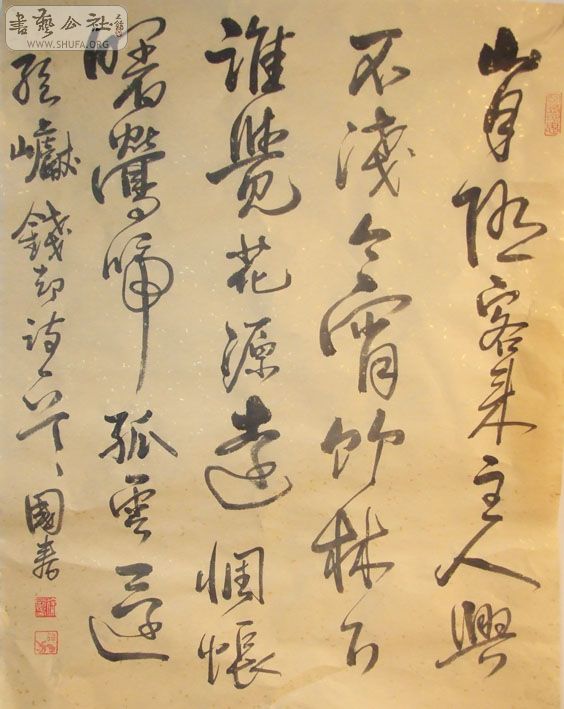 書藝公社
WWW.SHUFA.ORG
山月隨客來主人興
不淺今宵竹林下
誰覺花源遠惆悵
曙鶯啼孤雲還
絕巘錢起詩國壽